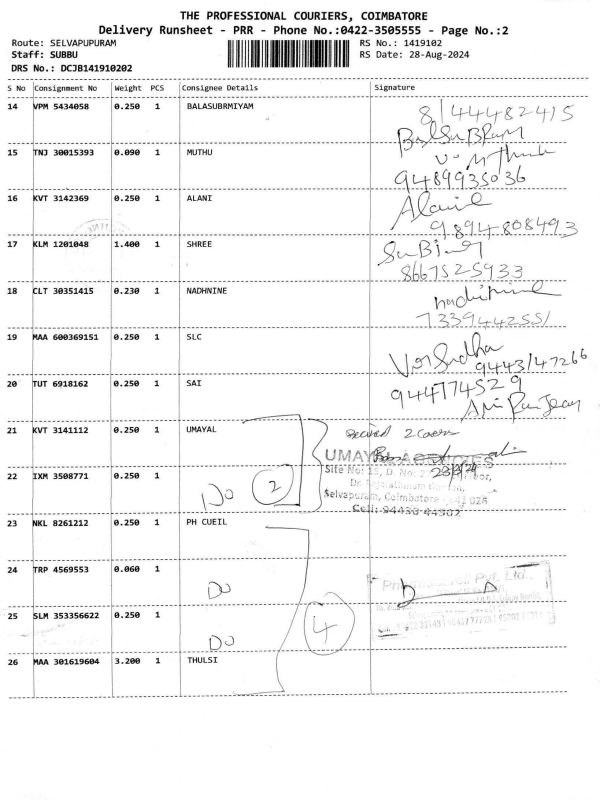 THE PROFESSIONAL COURIERS, COIMBATORE
Delivery Runsheet - PRR - Phone No.:0422-3505555 - Page No.:2
Route: SELVAPUPURAM
Staff: SUBBU
DRS No.: DCJB141910202
RS No.: 1419102
RS Date: 28-Aug-2024
S No Consignment No Weight PCS Consignee Details Signature
14 VPM 5434058 0.250 1 BALASUBRMIYAM
15 TNJ 30015393 0.090 1 MUTHU
9489935036
16 KVT 3142369 0.250 1 ALANI
9894808493
17 KLM 1201048 1.400 1 SHREE
8667525933
18 CLT 30351415 0.230 1 NADHNINE
7339442551
19 MAA 600369151 0.250 1 SLC
9443147266
20 TUT 6918162 0.250 1 SAI
9447774529
21 KVT 3141112 0.250 1 UMAYAL
UMAYAL AGENCIES
22 IXM 3508771 0.250 1
Do 2
Selvapuram, Coimbatore - 641 026
23 NKL 8261212 0.250 1 PH CUEIL
24 TRP 4569553 0.060 1
Do
25 SLM 353356622 0.250 1
Do 4
26 MAA 301619604 3.200 1 THULSI